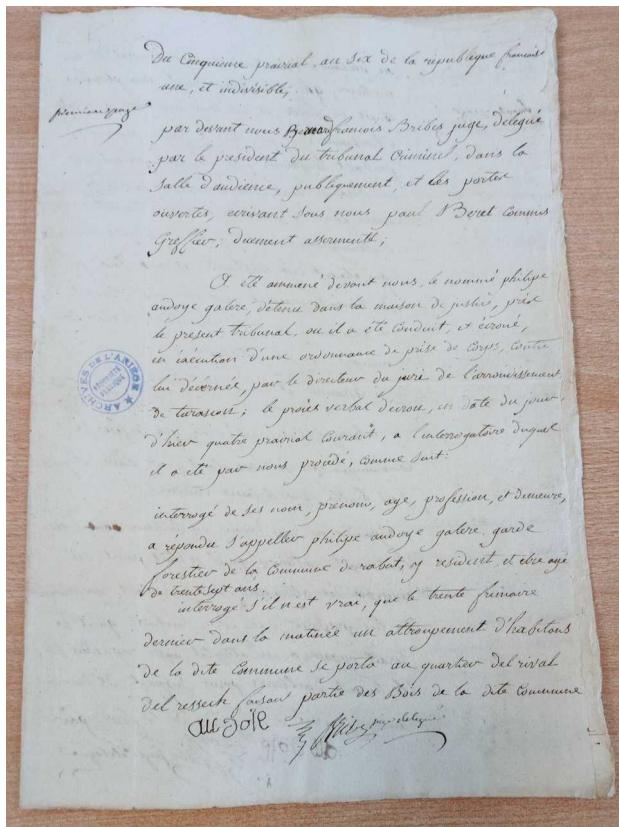 Du Cinquieme prairial, an six de la republique francaise
une, et indivisible,
premiere page
par devant nous francois Bribes juge, delegué
par le president du tribunal Criminel, dans la
salle d'audience, publiquement, et les portes
ouvertes, ecrivant sous nous paul Beret Commis
Greffier, duement assermenté;
A été amméné devant nous, le nommé philipe
andoye galere, détenu dans la maison de justice, près
le present tribunal, ou il a été conduit, et écroué,
en exécution d'une ordonnance de prise de Corps, contre
lui décernée, par le directeur du juré de l'arrondissement
de tarascon; le procès verbal décrou, en date du jour
d'hier quatre prairial Courant, a l'interrogatoire duquel
il a été par nous procédé, comme suit:
interrogé de ses nom, prenom, age, profession, et demeure,
a répondu s'appeller philipe andoye galere garde
forestier de la Commune de rabat, y resident, et etre agé
de trente sept ans.
interrogé s'il n'est vrai, que le trente frimaire
dernier dans la matinée un attroupement d'habitans
de la dite Commune se porta au quartier del rival
del ressech faisant partie des Bois de la dite Commune
au doïe
Bribes juge delegué
ARCHIVES DE L'ARIEGE
PROPRIETE PUBLIQUE